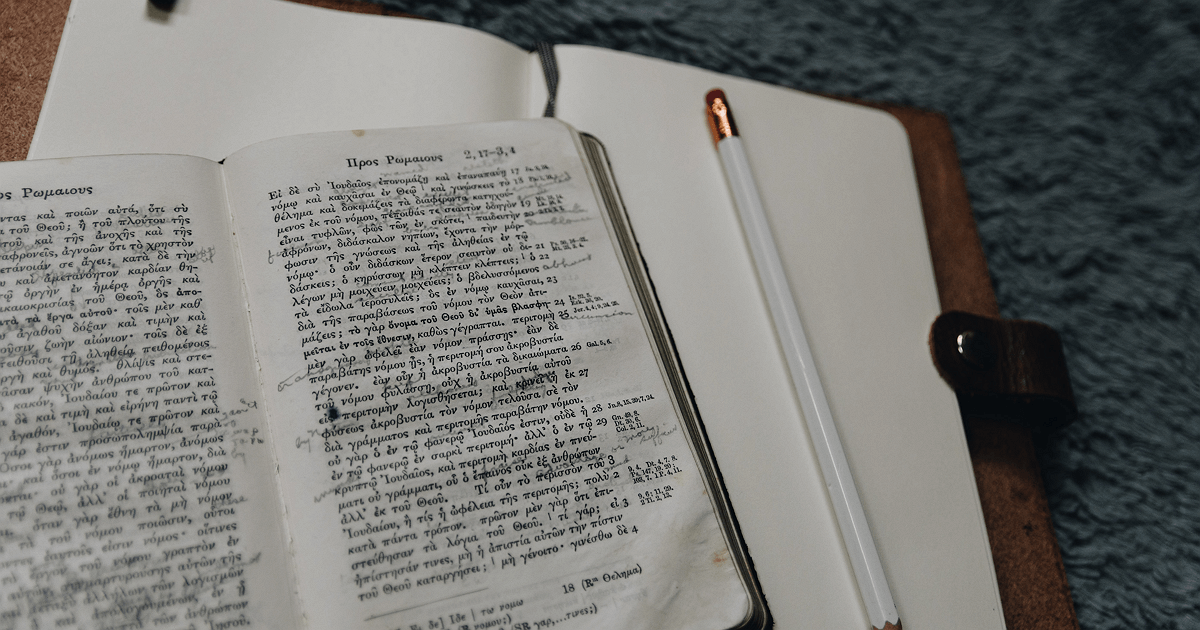 ος Ρωμαιους
ντας καὶ ποιῶν αὐτά, ὅτι σὺ
τοῦ Θεοῦ; ἢ τοῦ πλούτου τῆς
τοῦ καὶ τῆς ἀνοχῆς καὶ τῆς
αφρονεῖς, ἀγνοῶν ὅτι τὸ χρηστὸν
ετάνοιάν σε ἄγει; κατὰ δὲ τὴν
υ καὶ ἀμετανόητον καρδίαν θη-
ῷ ὀργὴν ἐν ἡμέρᾳ ὀργῆς καὶ
ικαιοκρισίας τοῦ Θεοῦ, ὃς ἀπο-
κατὰ τὰ ἔργα αὐτοῦ· τοῖς μὲν καθ’
υ ἀγαθοῦ δόξαν καὶ τιμὴν καὶ
οῦσιν ζωὴν αἰώνιον· τοῖς δὲ ἐξ
τειθοῦσι τῇ ἀληθείᾳ πειθομένοις
ργὴ καὶ θυμός. θλῖψις καὶ στε-
ᾶσαν ψυχὴν ἀνθρώπου τοῦ κατ-
κακόν, Ἰουδαίου τε πρῶτον καὶ
α δὲ καὶ τιμὴ καὶ εἰρήνη παντὶ τῷ
ἀγαθόν, Ἰουδαίῳ τε πρῶτον καὶ
γάρ ἐστιν προσωπολημψία παρὰ
Ὅσοι γὰρ ἀνόμως ἥμαρτον, ἀνόμως
καὶ ὅσοι ἐν νόμῳ ἥμαρτον, διὰ
νται· οὐ γὰρ οἱ ἀκροαταὶ νόμου
τῷ Θεῷ, ἀλλ’ οἱ ποιηταὶ νόμου
ὅταν γὰρ ἔθνη τὰ μὴ νόμον
νόμου ποιῶσιν, οὗτοι
ἑαυτοῖς εἰσιν νόμος· οἵτινες
ἔργον τοῦ νόμου γραπτὸν ἐν
συμμαρτυρούσης αὐτῶν τῆς
μεταξὺ ἀλλήλων τῶν λογισμῶν
ἀπολογουμένων, ἐν ᾗ
ἀνθρώπων
Ἰησοῦ.
Προς Ρωμαιους 2,17–3,4
Εἰ δὲ σὺ Ἰουδαῖος ἐπονομάζῃ καὶ ἐπαναπαύῃ 17
νόμῳ καὶ καυχᾶσαι ἐν Θεῷ | καὶ γινώσκεις τὸ 18
θέλημα καὶ δοκιμάζεις τὰ διαφέροντα κατηχού-
μενος ἐκ τοῦ νόμου, πέποιθάς τε σεαυτὸν ὁδηγὸν 19
εἶναι τυφλῶν, φῶς τῶν ἐν σκότει, | παιδευτὴν 20
ἀφρόνων, διδάσκαλον νηπίων, ἔχοντα τὴν μόρ-
φωσιν τῆς γνώσεως καὶ τῆς ἀληθείας ἐν τῷ
νόμῳ· ὁ οὖν διδάσκων ἕτερον σεαυτὸν οὐ δι- 21
δάσκεις; ὁ κηρύσσων μὴ κλέπτειν κλέπτεις; | ὁ 22
λέγων μὴ μοιχεύειν μοιχεύεις; ὁ βδελυσσόμενος
τὰ εἴδωλα ἱεροσυλεῖς; ὃς ἐν νόμῳ καυχᾶσαι, 23
διὰ τῆς παραβάσεως τοῦ νόμου τὸν Θεὸν ἀτι-
μάζεις; τὸ γὰρ ὄνομα τοῦ Θεοῦ δι’ ὑμᾶς βλασφη- 24
μεῖται ἐν τοῖς ἔθνεσιν, καθὼς γέγραπται. περιτομὴ 25
μὲν γὰρ ὠφελεῖ ἐὰν νόμον πράσσῃς· ἐὰν δὲ
παραβάτης νόμου ᾖς, ἡ περιτομή σου ἀκροβυστία
γέγονεν. ἐὰν οὖν ἡ ἀκροβυστία τὰ δικαιώματα 26 Gal. 5, 6.
τοῦ νόμου φυλάσσῃ, οὐχ ἡ ἀκροβυστία αὐτοῦ
εἰς περιτομὴν λογισθήσεται; καὶ κρινεῖ ἡ ἐκ 27
φύσεως ἀκροβυστία τὸν νόμον τελοῦσα σὲ τὸν
διὰ γράμματος καὶ περιτομῆς παραβάτην νόμου.
οὐ γὰρ ὁ ἐν τῷ φανερῷ Ἰουδαῖός ἐστιν, οὐδὲ ἡ 28
ἐν τῷ φανερῷ ἐν σαρκὶ περιτομή· ἀλλ’ ὁ ἐν τῷ 29
κρυπτῷ Ἰουδαῖος, καὶ περιτομὴ καρδίας ἐν πνεύ-
ματι οὐ γράμματι, οὗ ὁ ἔπαινος οὐκ ἐξ ἀνθρώπων
ἀλλ’ ἐκ τοῦ Θεοῦ. Τί οὖν τὸ περισσὸν τοῦ 3
Ἰουδαίου, ἢ τίς ἡ ὠφέλεια τῆς περιτομῆς; πολὺ 2
κατὰ πάντα τρόπον. πρῶτον μὲν γὰρ ὅτι ἐπι-
στεύθησαν τὰ λόγια τοῦ Θεοῦ. | τί γάρ; εἰ 3
ἠπίστησάν τινες, μὴ ἡ ἀπιστία αὐτῶν τὴν πίστιν
τοῦ Θεοῦ καταργήσει; | μὴ γένοιτο· γινέσθω δὲ 4
18 (Rᵐ θελημα)
δε] Ιδε | τω νομω